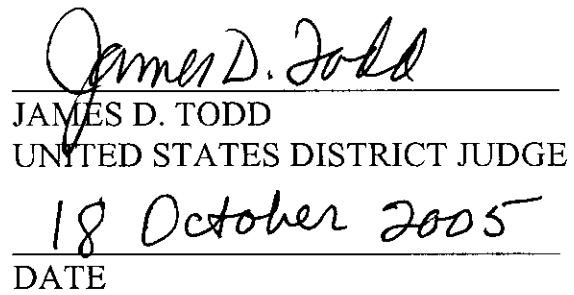 James D. Todd
JAMES D. TODD
UNITED STATES DISTRICT JUDGE
18 October 2005
DATE